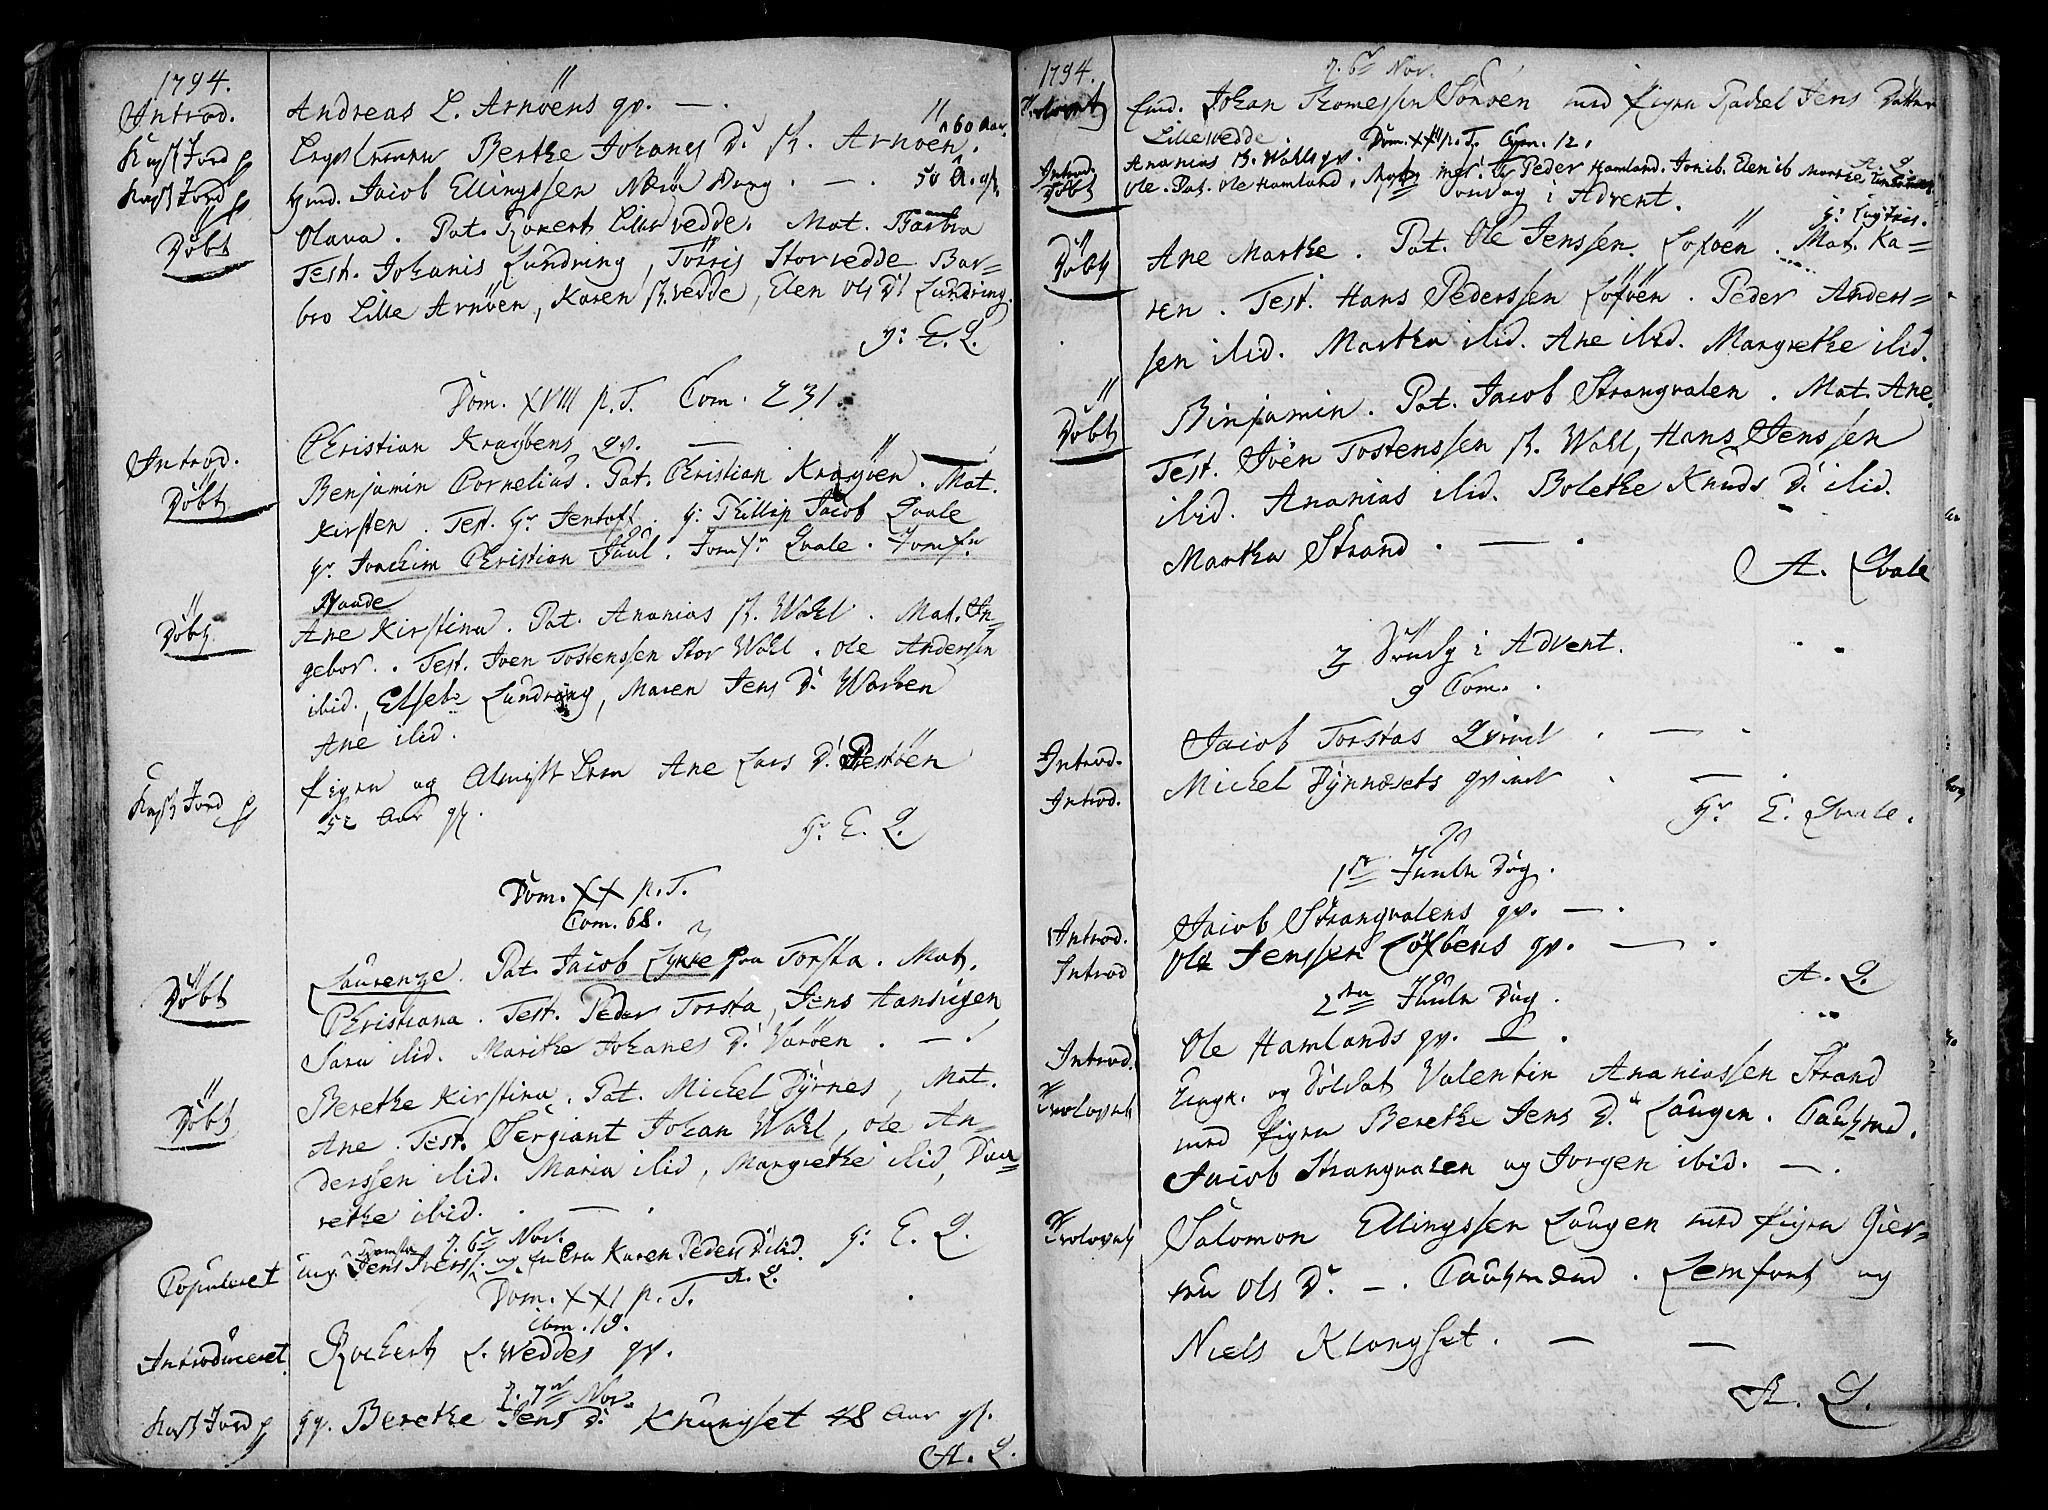 1794.
Introd. Andreas L. Arnöens qv. — .
Kast Jord p Berthe Johanes D. St. Arnöen. 60 Aar.
Kast Jord p Jacob Ellingssen Nærö 50 A. gl.
Döbt Olava. Pat. Rokert Lille vedde. Mat. Barbra
Test. Johanis Lundring, Törris Storvedde Bar=
bro Lille Arnöen, Karen St. vedde, Elen Ols D. Lundring.
Hr. E. Q.
Dom. XVIII p. T. Com. 231
Introd. Christian Kraaöens qv. —
Döbt Benjamin Cornelius. Pat. Christian Kraaöen. Mat.
Kirsten. Test. Hr Jentoft. Hr. Phillip Jacob Qvale
Hr. Joachim Christian Juul. Jomfr. Qvale. Jomfru
Döbt Ane Kirstina. Pat. Ananias St. Wahl. Mat. In=
gebor. Test. Iven Tostenssen Stor Wahl. Ole Anderssen
ibid., Elsebe Lundring, Maren Jens D. Waröen
Ane ibid.
Kast Jord p Pigen og Ane Lars D.
52 Aar gl.
Hr. E. Q.
Dom. XX p. T.
Com. 68.
Döbt Laurenze. Pat. Jacob Lykke fra Torsta. Mat.
Christiana. Test. Peder Torsta, Jens
Sara ibid. Marithe Johanes D. Varöen. —
Döbt Berethe Kirstina. Pat. Michel Dyrnes, Mat.
Ane. Test. Sergiant Johan Wahl, Ole An=
derssen ibid. Maria ibid, Margrethe ibid, Do=
rethe ibid. —
d. 6te Nov.
Copuleret Ung. Jens Iverss. og Karen Peders D. ibid. Hr. E. Q.
A. Q.
Dom. XXI p. T.
Com. 19.
Introduceret Rochert L. Weddes qv.
d. 7de Nov.
Kast Jord p Berethe Jens D. Knungset 48 Aar gl.
A. Q.
1794.
d. 6te Nov.
Johan Thomessen Sönöen med Pigen Rachel Jens Datter
Lillevedde. Dom. XXIII p. T. Com. 12.
Introd. Ananias St. Wahls qv.
Döbt Ole. Pat. Ole Hamland, Peder Hamland. Jon ib. Elen ib Marthe A. Q.
Söndag i Advent.
Döbt Ane Marthe. Pat. Ole Jenssen Loföen. Mat. Ka=
ren. Test. Hans Pederssen Loföen. Peder Anders=
sen ibid. Martha ibid. Ane ibid. Margrethe ibid.
Döbt Binjamin. Pat. Jacob Strangvalen. Mat. Ane.
Test. Iven Tostenssen St. Wahl, Hans Jenssen
ibid. Ananias ibid. Bolethe Knuds D. ibid.
Martha Strand. —
A. Qvale
3 Söndg i Advent.
9 Com.
Introd. Jacob Torstas Qvind . — .
Introd. Michel Dynnæsets qvind . — .
Hr E. Qvale.
1ste Juule Dag.
Introd. Jacob Strangvalens qv. — .
Introd Ole Jenssen Loföens qv. — .
A. Q.
2den Juule Dag.
Introd. Ole Hamlands qv. — .
Trolovet Ungk. og Soldat Valentin Ananiassen Strand
med Pigen Berethe Jens D. Laugen. Cautsmd.
Jacob Strangvalen og Jörgen ibid. — .
Trolovet Salomon Ellingssen Laugen med Pigen Gier=
tru Ols D. — . Cautsmænd. Lemfort og
Niels Klongset. — —
A. Q.